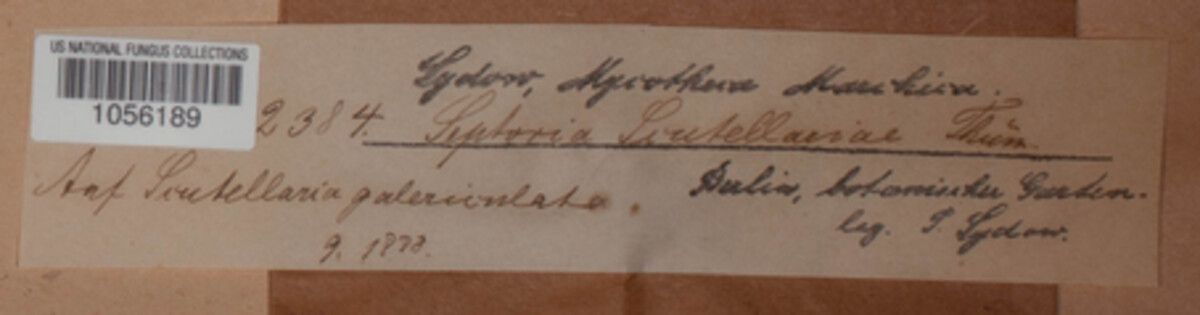 US NATIONAL FUNGUS COLLECTIONS
1056189
Sydow, Mycotheca Marchica.
2384. Septoria Scutellariae Thüm.
Auf Scutellaria galericulata.
Berlin, botanischer Garten.
9. 1878.
leg. P. Sydow.